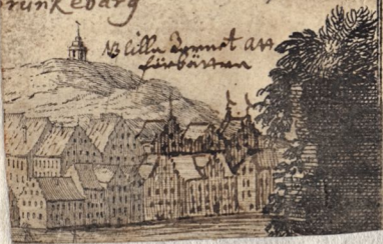 runkebarg
NB lilla Tornet att
förbättra